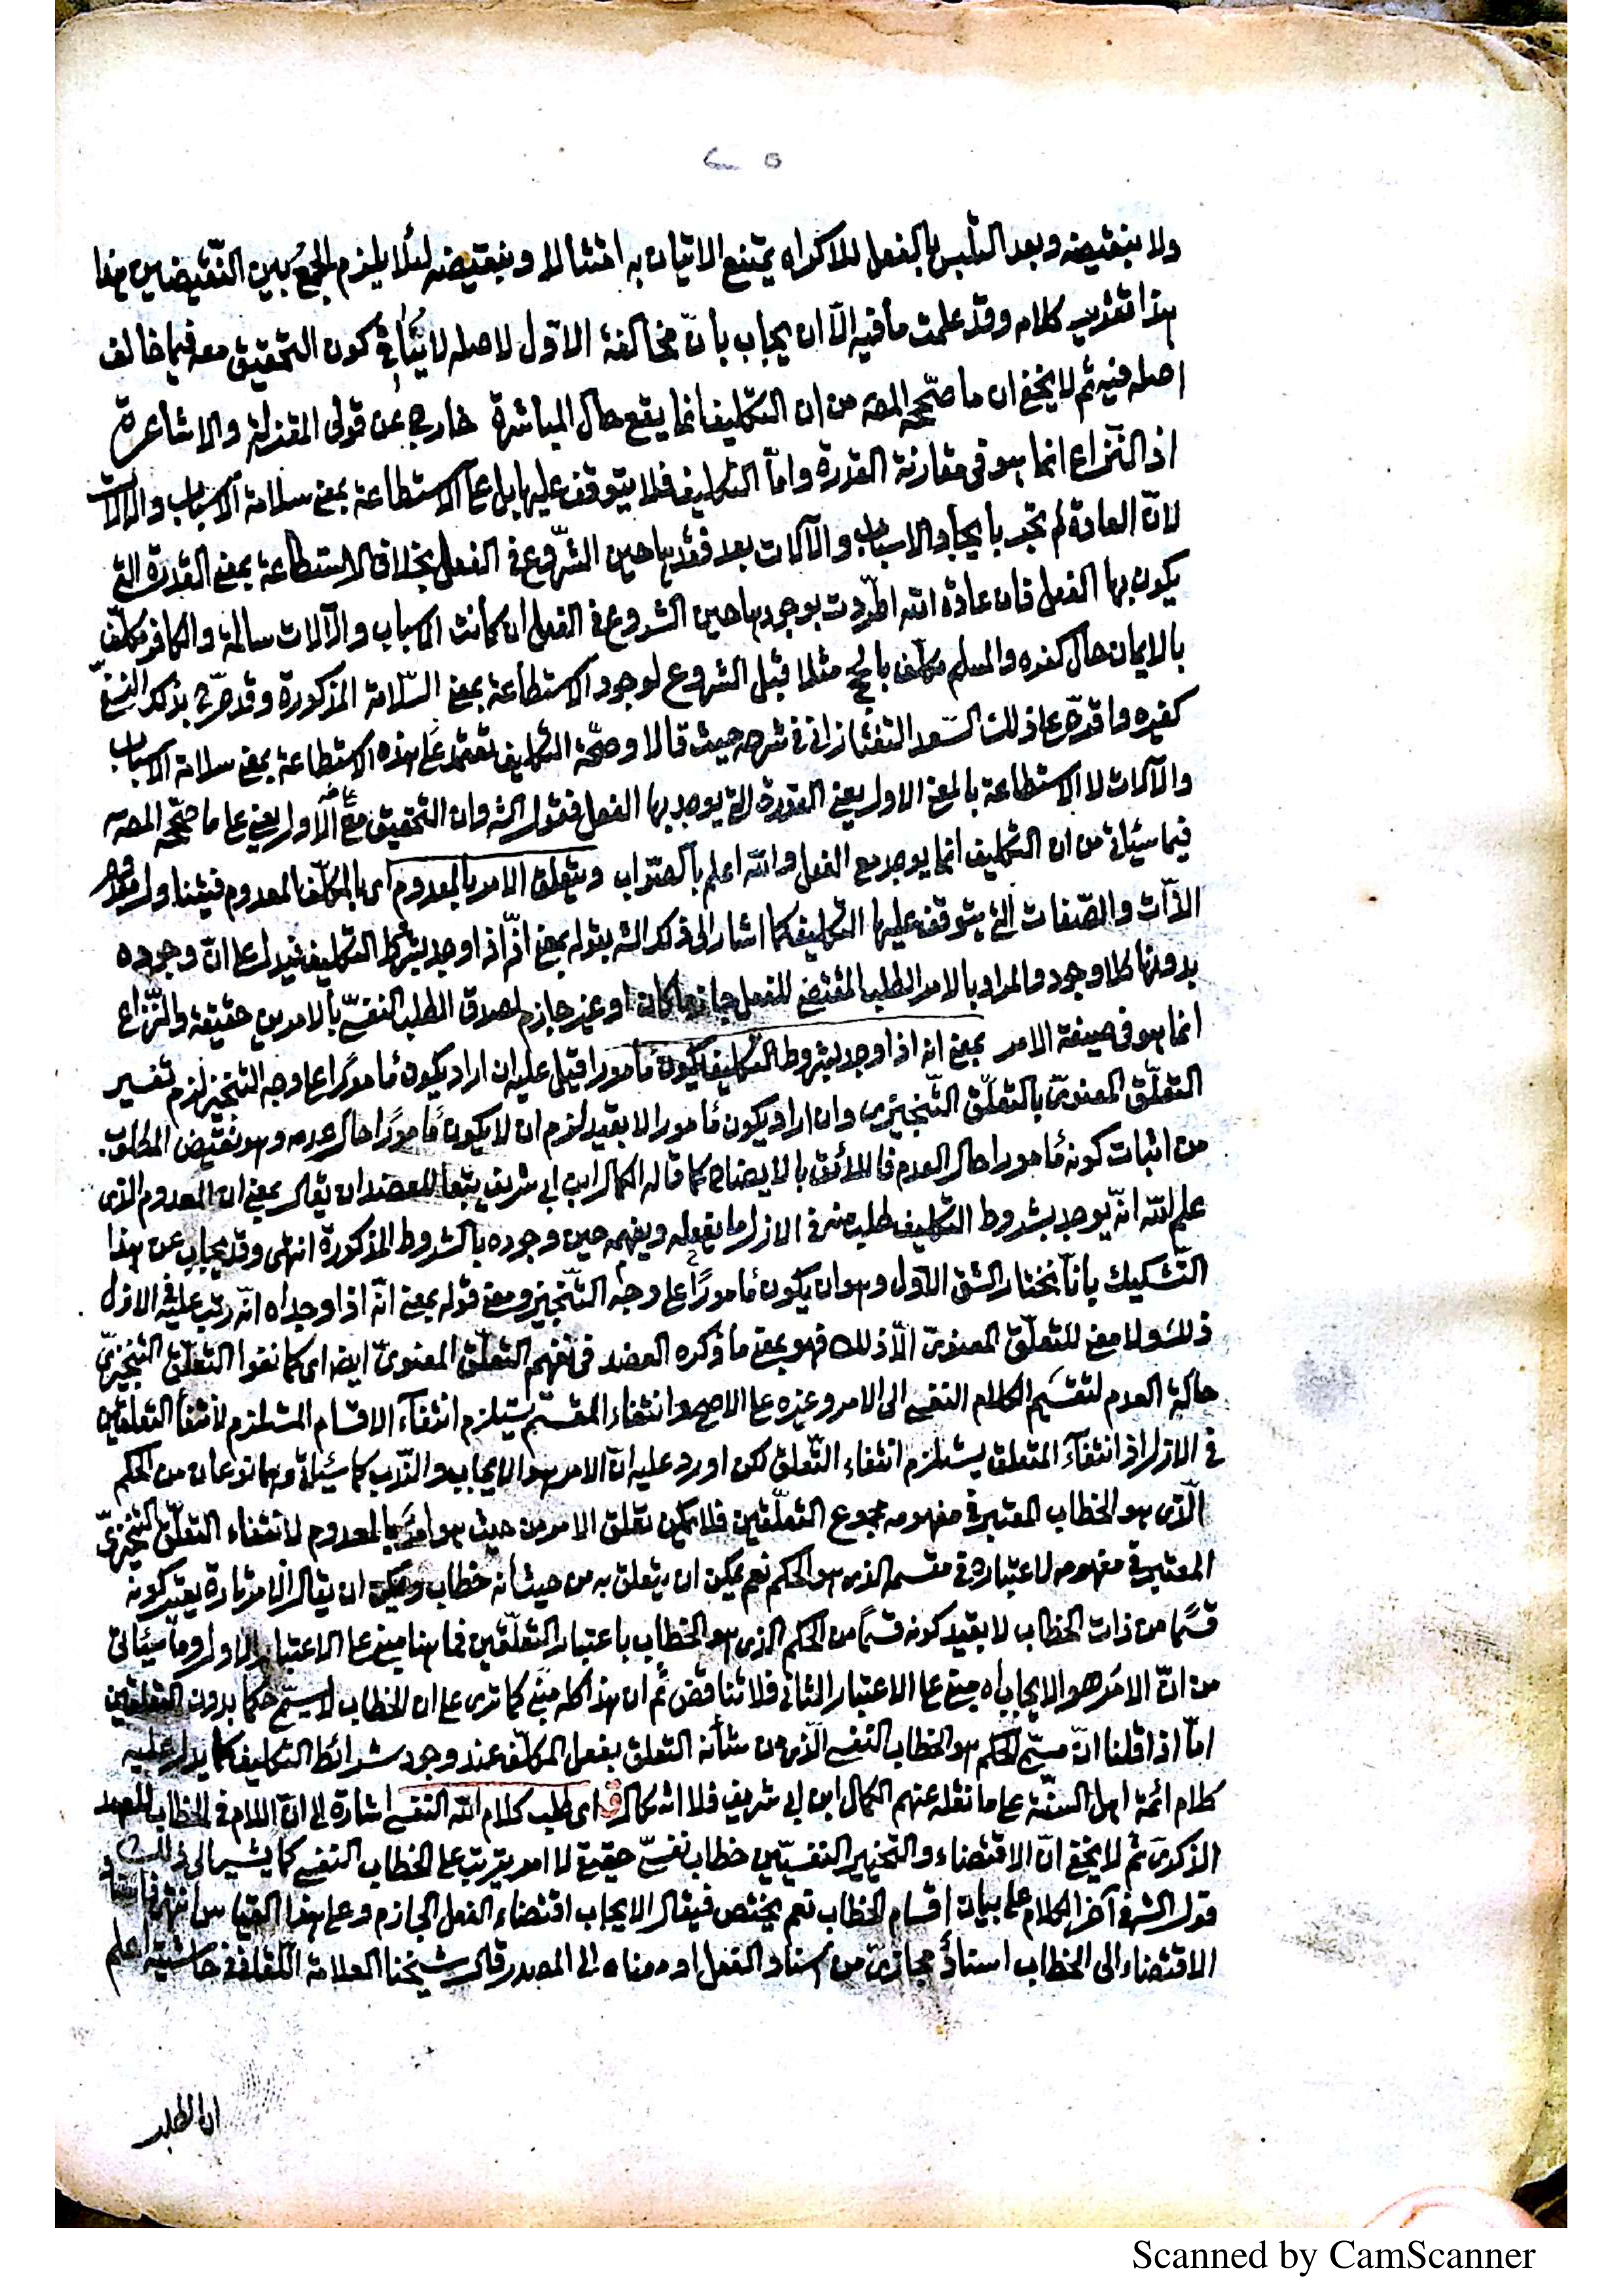 ٢٥
ولا بنقيضه وبعد التلبس بالفعل للاكراه يمتنع الاتيان به امتثالا وبنقيضه لئلا يلزم الجمع بين النقيضين هذا
هذا تقرير كلامه وقد علمت ما فيه الا ان يجاب بأن مخالفة الاول لاصله لا ينافي كون التحقيق معه فيما خالف
اصله فيه ثم لا يخفى ان ما صححه المصـ من ان التكليف انما يقع حال المباشرة خارج عن قولى المعتزلة والاشاعرة
اذ النزاع انما هو فى مقارنة القدرة واما التكليف فلا يتوقف عليها بل على الاستطاعة بمعنى سلامة الاسباب والآلات
لان العادة لم تجر بأيجاد الاسباب والآلات بعد فقدها حين الشروع في الفعل بخلاف الاستطاعة بمعنى القدرة التي
يكون بها الفعل فان عادة الله اطردت بوجودها حين الشروع في الفعل ان كانت الاسباب والآلات سالمة والكافر مكلف
بالايمان حال كفره والمسلم مكلف بالحج مثلا قبل الشروع لوجود الاستطاعة بمعنى السلامة المذكورة وقد صرح بذلك النسفي
كغيره واقره على ذلك السعد التفتازانى فى شرحه حيث قالا وصحة التكليف تعتمد على هذه الاستطاعة بمعنى سلامة الاسباب
والآلات لا الاستطاعة بالمعنى الاول يعنى القدرة التي يوجد بها الفعل فقول الشـ وان التحقيق مع الأول يعنى على ما صححه المصـ
فيما سيأتى من ان التكليف انما يوجد مع الفعل والله اعلم بالصواب ويتعلق الامر بالمعدوم اى بالمكلف المعدوم فيتناول
الذات والصفات التي يتوقف عليها التكليف كما اشار الى ذلك الشـ بقوله بمعنى انه اذا وجد بشرط التكليف فيدل على ان وجوده
بدونها كلا وجود والمراد بالامر الطلب المقتضى للفعل جازما كان او غير جازم لصدق الطلب النفسي بالامرين حقيقة والنزاع
انما هو فى صيغة الامر بمعنى انه اذا وجد بشروط التكليف يكون مأمورا قيل عليه ان اراد يكون مأمورا على وجه التنجيز لزم تفسير
التعلق المعنوى بالتعلق التنجيزى وان اراد يكون مأمورا لا بقيد لزم ان لا يكون مأمورا حال عدمه وهو نقيض المطلوب
من اثبات كونه مأمورا حال العدم فاللائق بالايضاح كما قاله الكمال ابن ابى شريف تبعا للعضد ان يقال بمعنى ان المعدوم الذى
علم الله انه يوجد بشروط التكليف طلب منه فى الازل ما يفعله ويفهمه حين وجوده بالشروط المذكورة انتهى وقد يجاب عن هذا
التشكيك بانا نختار الشق الاول وهو ان يكون مأمورا على وجه التنجيز ومعنى قوله بمعنى انه اذا وجد اه انه رتب عليه فى الازل
ذلك ولا معنى للتعلق المعنوى الا ذلك فهو بمعنى ما ذكره العضد فى نفيهم التعلق المعنوى ايضا اى كما نفوا التعلق التنجيزي
حالة العدم لتقسيم الكلام النفسى الى الامر وغيره على الاصح وانتفاء المقسم يستلزم انتفاء الاقسام المستلزم لانتفا التعلقين
فى الازل اذ انتفاء المتعلق يستلزم انتفاء التعلق لكن اورد عليه ان الامر هو الايجاب والندب كما سيأتى وهما نوعان من الحكم
الذى هو الخطاب المعتبر فى مفهومه مجموع التعلقين فلا يمكن تعلق الامر من حيث هو امر بالمعدوم لانتفاء التعلق التنجيزي
المعتبر فى مفهومه لاعتباره فى مقسمه الذى هو الحكم نعم يمكن ان يتعلق به من حيث أنه خطاب ويمكن ان يقال الامر تارة يعتبر كونه
قسما من ذات الخطاب لا بقيد كونه قسما من الحكم الذى هو الخطاب باعتبار التعلقين فما هنا مبني على الاعتبار الاول وما سيأتى
من ان الامر هو الايجاب اه مبني على الاعتبار الثانى فلا تناقض ثم ان هذا كله مبني كما ترى على ان الخطاب لا يسمى حكما بدون التعلقين
اما اذا قلنا ان مسمى الحكم هو الخطاب النفسى الذى من شأنه التعلق بفعل المكلف عند وجود شرائط التكليف كما يدل عليه
كلام ائمة اهل السنة على ما نقله عنهم الكمال ابن ابى شريف فلا اشكال ق اى طلب كلام الله النفسى اشارة الى ان اللام فى الخطاب للعهد
الذكرى ثم لا يخفى ان الاقتضاء والتخيير النفسيين خطاب نفسي حقيقة لا امر يترتب على الخطاب النفسى كما يشير الى ذلك
قول الشـ فى آخر الكلام على بيان اقسام الخطاب نعم يختص فيقال الايجاب اقتضاء الفعل الجازم وعلى هذا القياس انتهى فاسناد
الاقتضاء الى الخطاب اسناد مجازى من اسناد الفعل او معناه الى المصدر قال شيخنا العلامة اللقانى فى حاشيته اعلم
ان الطلب